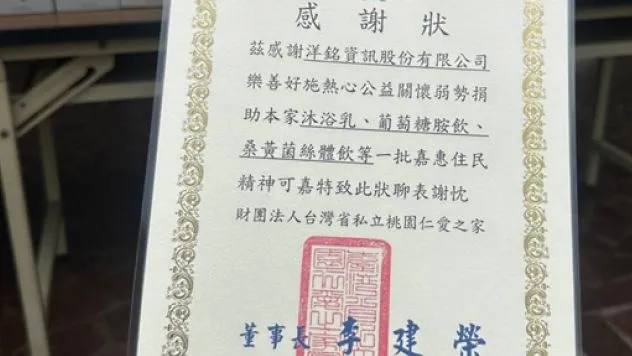 感謝狀
茲感謝洋銘資訊股份有限公司
樂善好施熱心公益關懷弱勢捐
助本家沐浴乳、葡萄糖胺飲、
桑黃菌絲體飲等一批嘉惠住民
精神可嘉特致此狀聊表謝忱
財團法人台灣省私立桃園仁愛之家
董事長 李建榮